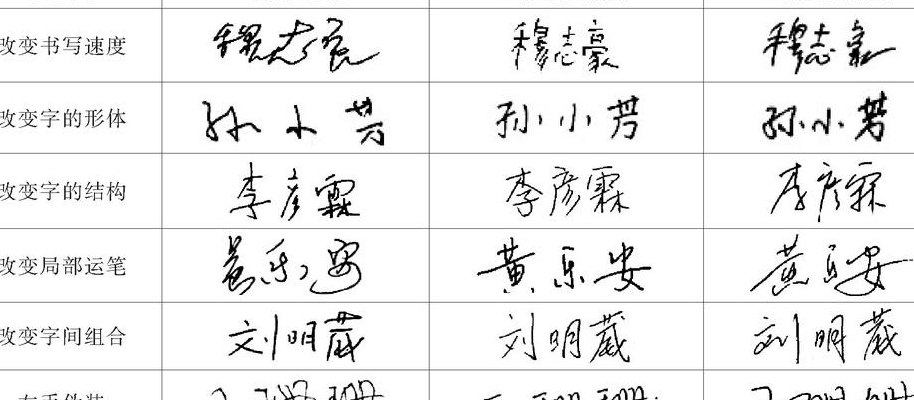 改变书写速度 穆志豪 穆志豪 穆志豪
改变字的形体 孙小芳 孙小芳 孙小芳
改变字的结构 李彦霖 李彦霖 李彦霖
改变局部运笔 黄乐安 黄乐安 黄乐安
改变字间组合 刘明葳 刘明葳 刘明葳